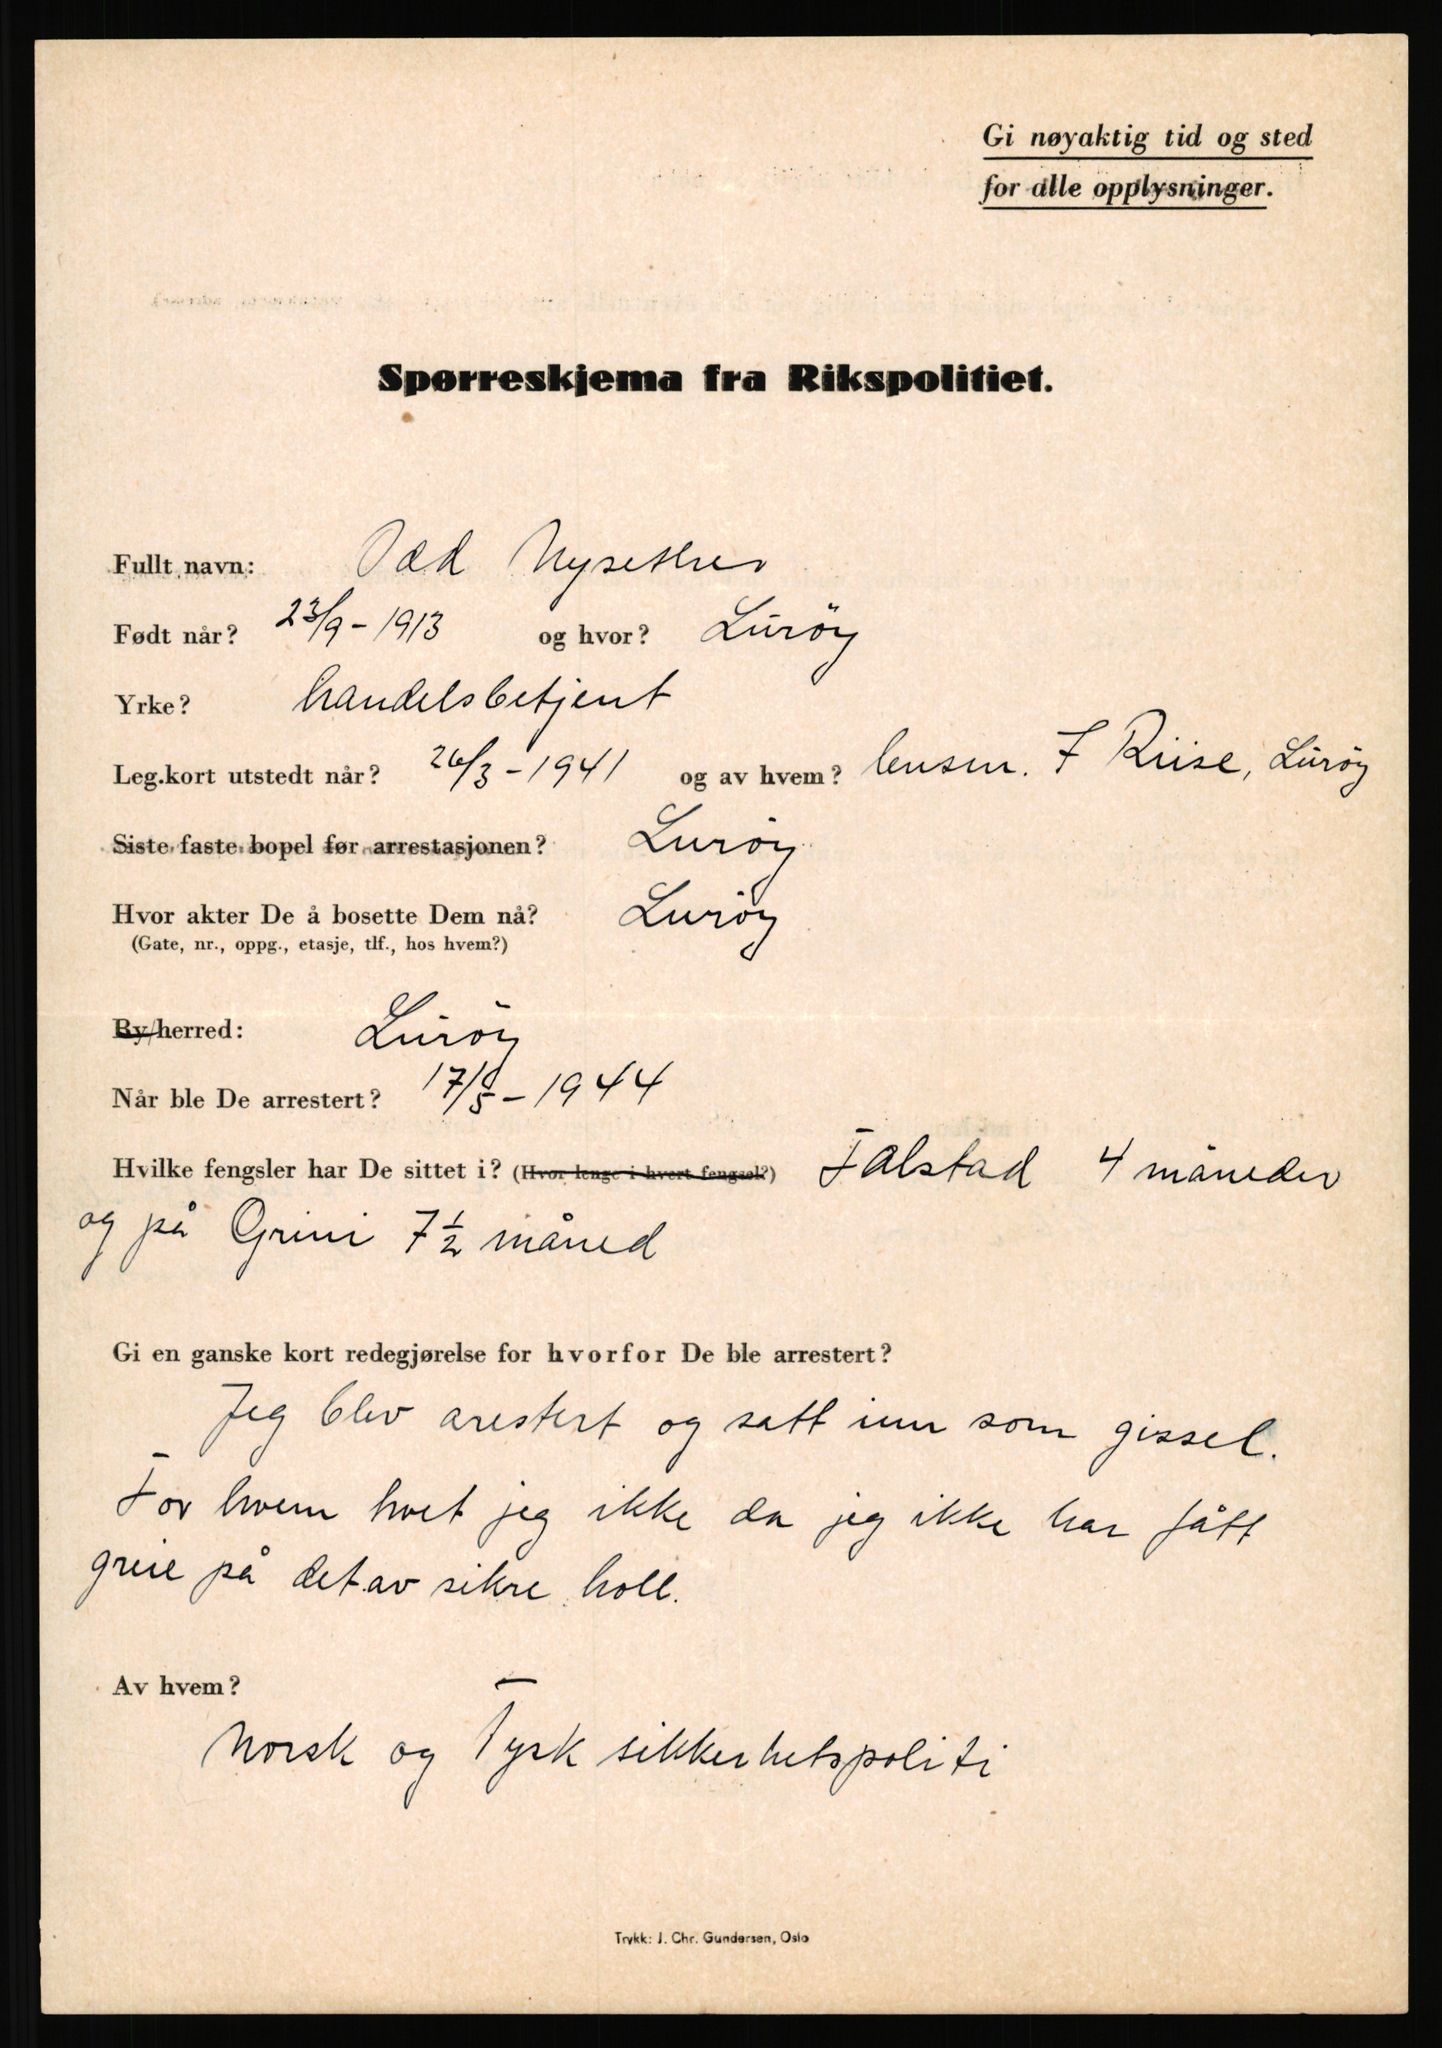 Gi nøyaktig tid og sted
for alle opplysninger.
Spørreskjema fra Rikspolitiet.
Fullt navn: Odd Nysether
Født når? 23/9 - 1913 og hvor? Lurøy
Yrke? handelsbetjent
Leg.kort utstedt når? 26/3 - 1941 og av hvem? lensm. F Riise, Lurøy
Siste faste bopel før arrestasjonen? Lurøy
Hvor akter De å bosette Dem nå? Lurøy
(Gate, nr., oppg., etasje, tlf., hos hvem?)
By/herred: Lurøy
Når ble De arrestert? 17/5 - 1944
Hvilke fengsler har De sittet i? (Hvor lenge i hvert fengsel?) Falstad 4 måneder
og på Grini 7½ måned
Gi en ganske kort redegjørelse for hvorfor De ble arrestert?
Jeg blev arestert og satt inn som gissel.
For hvem hvet jeg ikke da jeg ikke har fått
greie på det av sikre holl.
Av hvem?
Norsk og Tysk sikkerhetspoliti
Trykk: J. Chr. Gundersen, Oslo